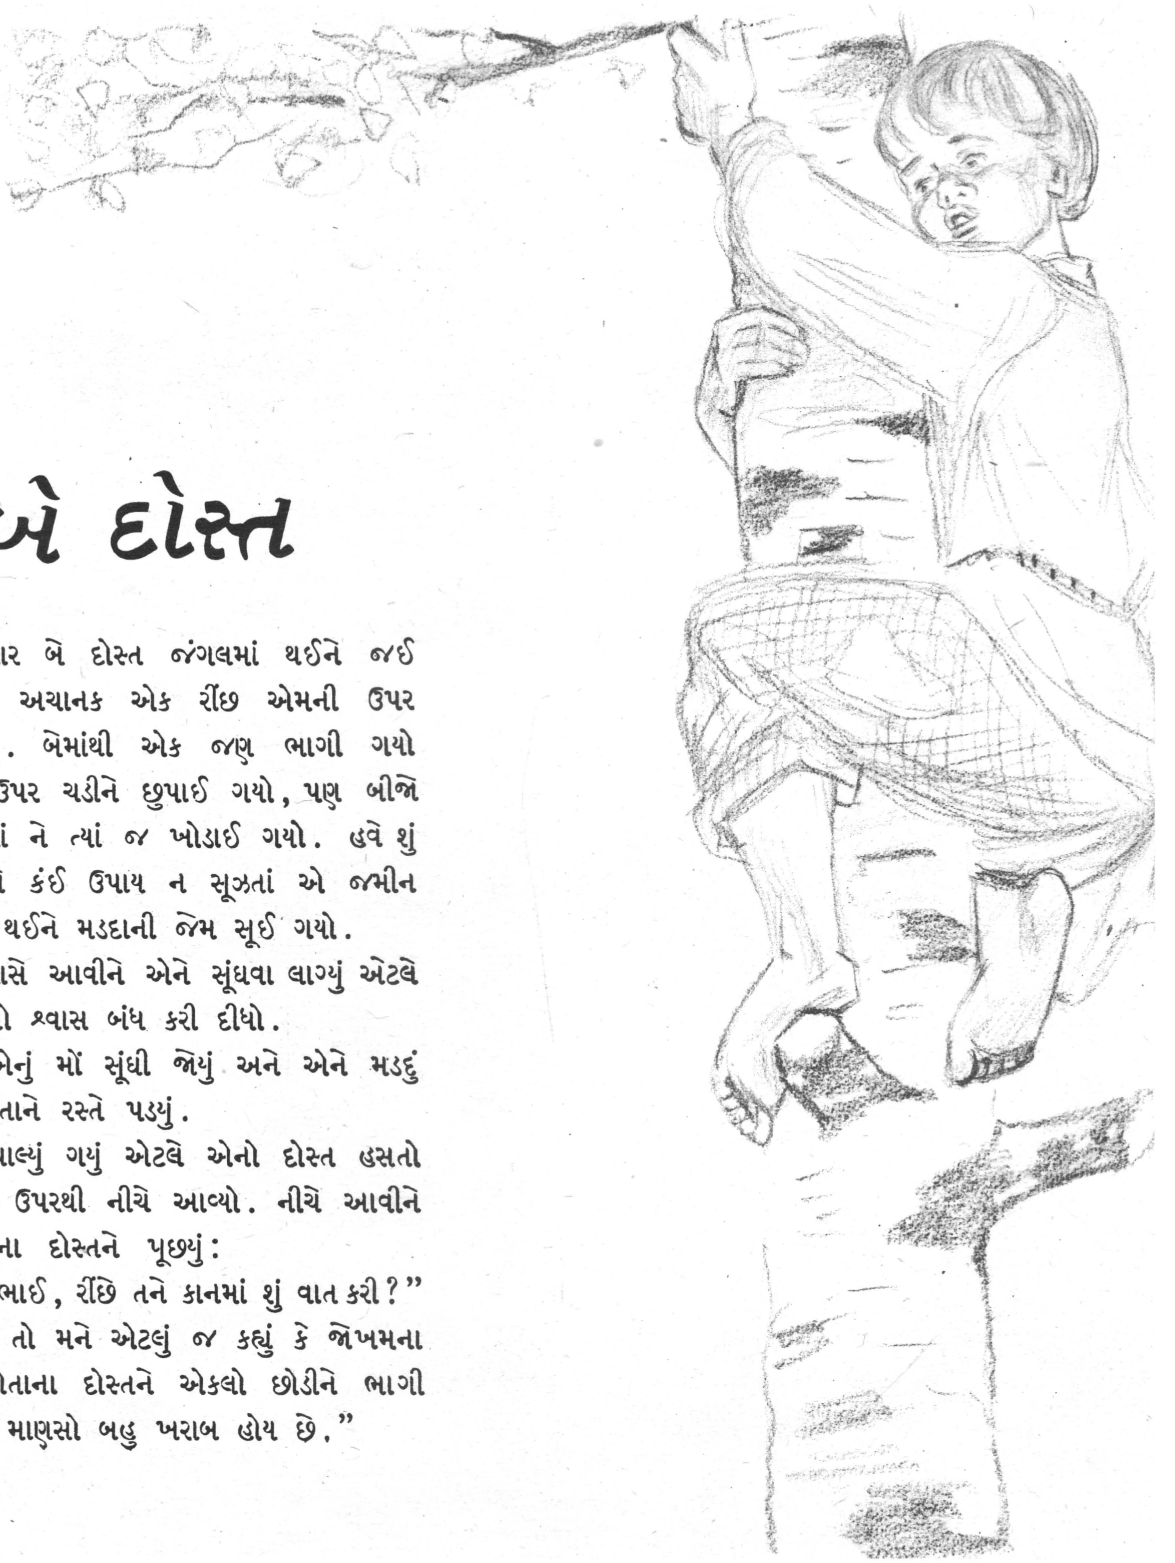 બે દોસ્ત
બે દોસ્ત જંગલમાં થઈને જઈ
અચાનક એક રીંછ એમની ઉપર
. બેમાંથી એક જણ ભાગી ગયો
ઉપર ચડીને છુપાઈ ગયો, પણ બીજો
ને ત્યાં જ ખોડાઈ ગયો. હવે શું
કંઈ ઉપાય ન સૂઝતાં એ જમીન
થઈને મડદાની જેમ સૂઈ ગયો.
આવીને એને સૂંઘવા લાગ્યું એટલે
શ્વાસ બંધ કરી દીધો.
એનું મોં સૂંઘી જોયું અને એને મડદું
રસ્તે પડયું.
ગયું એટલે એનો દોસ્ત હસતો
ઉપરથી નીચે આવ્યો. નીચે આવીને
દોસ્તને પૂછયું:
ભાઈ, રીંછે તને કાનમાં શું વાત કરી?”
તો મને એટલું જ કહ્યું કે જોખમના
દોસ્તને એકલો છોડીને ભાગી
માણસો બહુ ખરાબ હોય છે.”